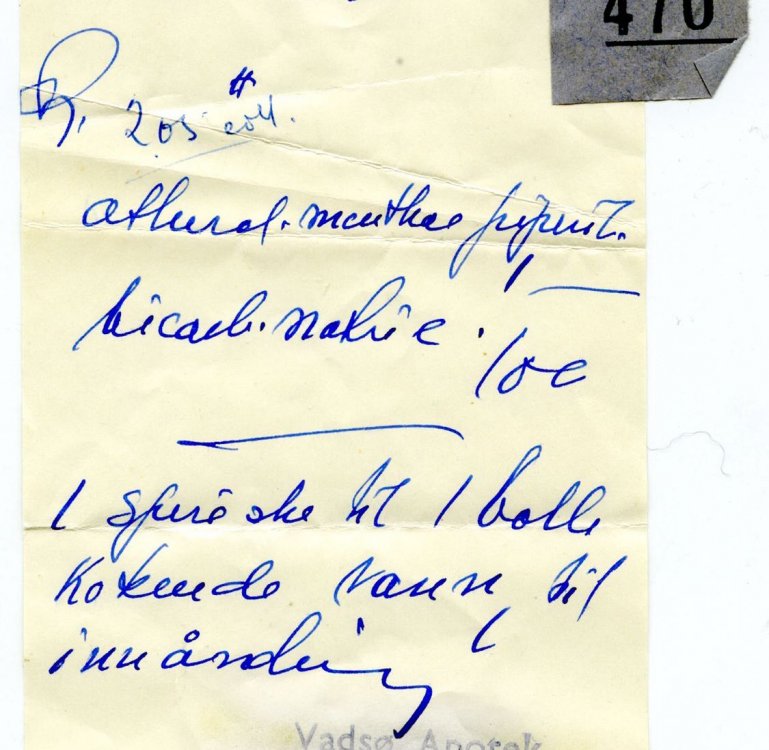 470
R. 205
aetherol. menthae piperit.
1
bicarb. natric.
100
1 spiseske til 1 bolle
kokende vann, til
innånding
Vadsø Apotek